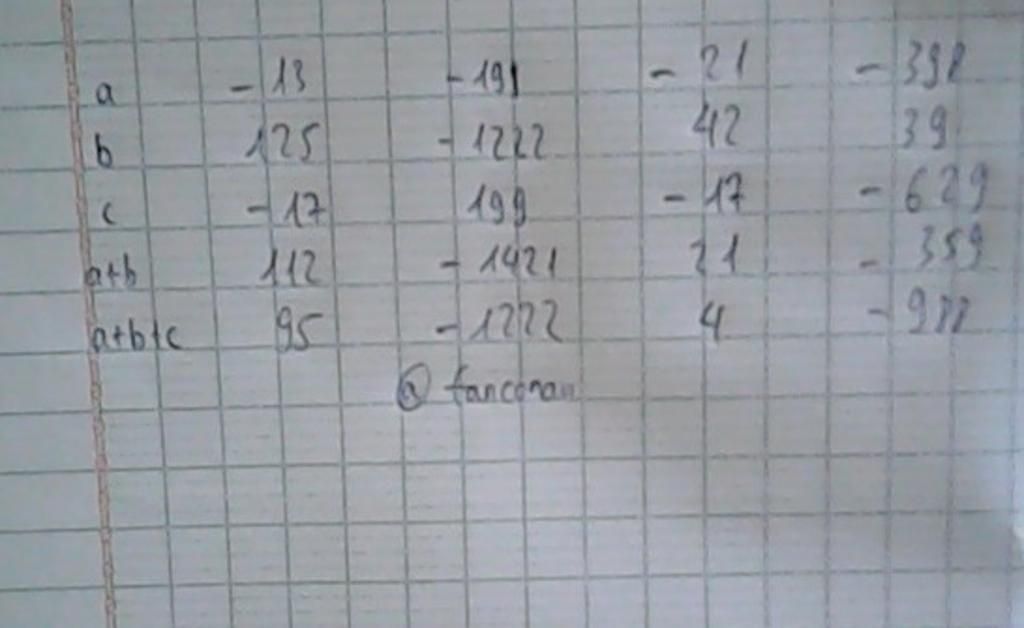 a - 13 - 191 - 21 - 398
b 125 - 1222 42 39
c - 17 199 - 17 - 629
a+b 112 - 1421 21 - 359
a+b+c 95 - 1222 4
@